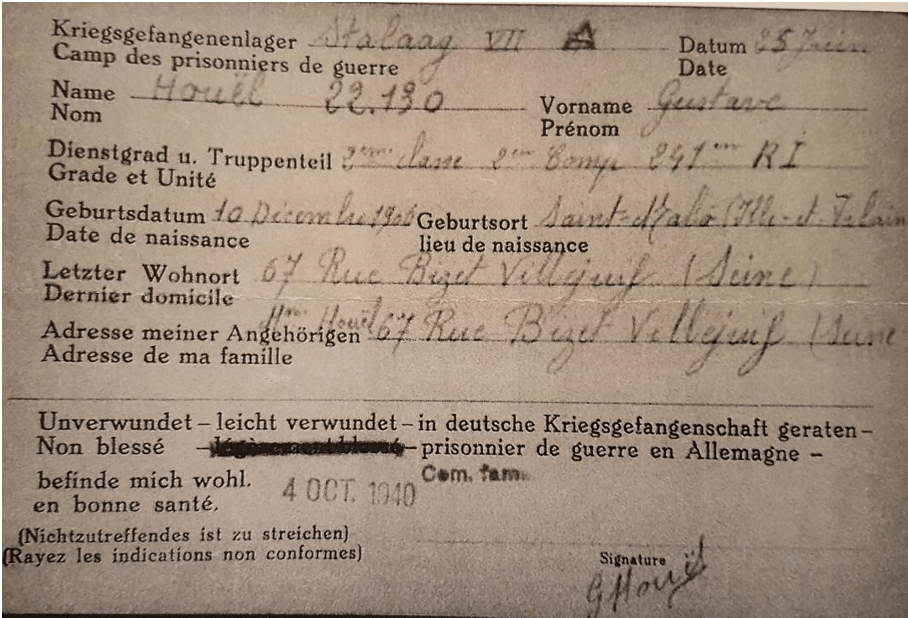 Kriegsgefangenenlager Stalaag VII A Datum 25 Juin
Camp des prisonniers de guerre Date
Name Houël 22.130 Vorname Gustave
Nom Prénom
Dienstgrad u. Truppenteil 2ème classe 2em Comp 241em RI
Grade et Unité
Geburtsdatum 10 Décembre 1906 Geburtsort Saint-Malo (Ille-et-Vilain
Date de naissance lieu de naissance
Letzter Wohnort 67 Rue Bizet Villejuif (Seine)
Dernier domicile
Adresse meiner Angehörigen Mme Houël 67 Rue Bizet Villejuif (Seine
Adresse de ma famille
Unverwundet – leicht verwundet – in deutsche Kriegsgefangenschaft geraten –
Non blessé – légèrement blessé – prisonnier de guerre en Allemagne –
befinde mich wohl. Com. fam.
en bonne santé. 4 OCT. 1940
(Nichtzutreffendes ist zu streichen)
(Rayez les indications non conformes)
Signature
GHouël